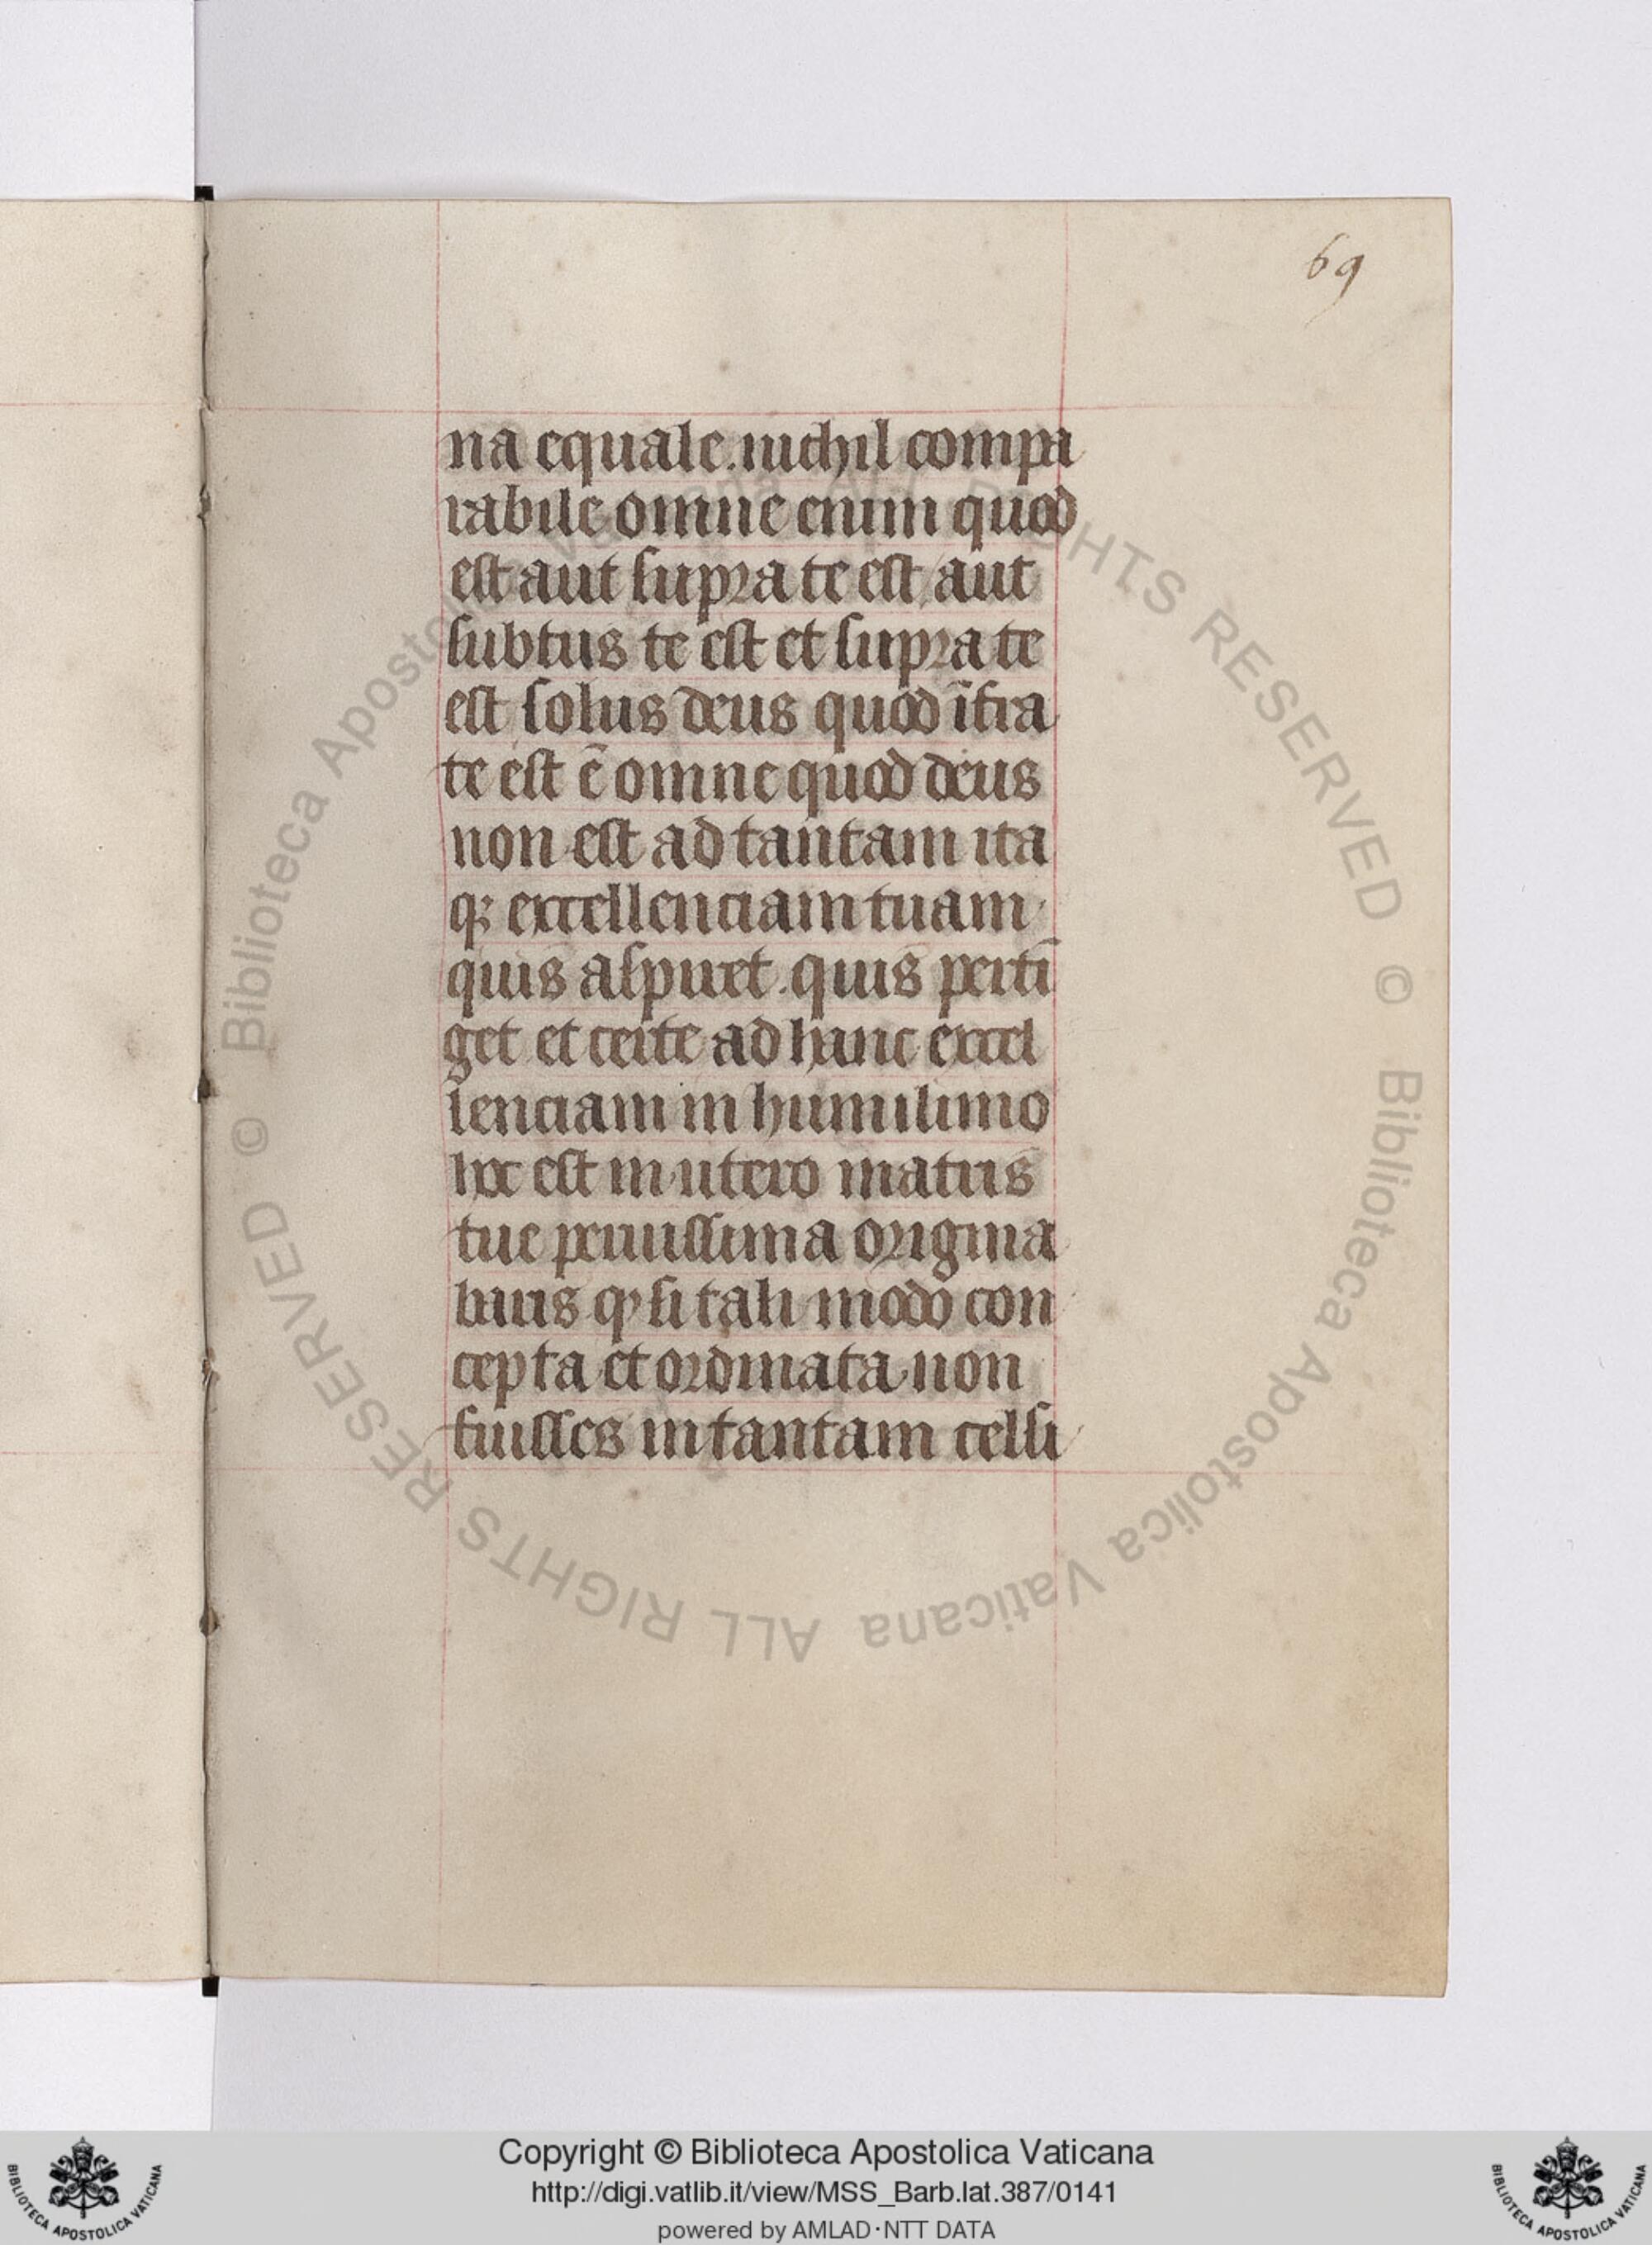 69
na equale. nichil compa
rabile omne enim quod
est aut supra te est aut
subtus te est et supra te
est solus deus quod ĩfra
te est ẽ omne quod deus
non est ad tantam ita
qꝫ excellenciam tuam
quis aspiret. quis perti
get et certe ad hanc excel
lenciam in humilimo
hoc est in utero matris
tue penitissima origina
buris ꝙ si tali modo con
cepta et ordinata non
fuisses in tantam celsi
Biblioteca Apostolica Vaticana ALL RIGHTS RESERVED © Biblioteca Apostolica Vaticana ALL RIGHTS RESERVED ©
Copyright © Biblioteca Apostolica Vaticana
http://digi.vatlib.it/view/MSS_Barb.lat.387/0141
powered by AMLAD·NTT DATA
BIBLIOTECA APOSTOLICA VATICANA
BIBLIOTECA APOSTOLICA VATICANA